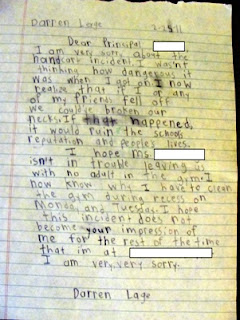 Darren Lage 2-25-11
Dear Principal
I am very sorry about the
handcart incident. I wasn't
thinking how dangerous it
was when I got on. I now
realize that if I or any
of my friends fell off
we could've broken our
necks. If that happened,
it would ruin the schools
reputation and people's lives.
I hope ms.
isn't in trouble leaving us
with no adult in the gym. I
now know why I have to clean
the gym during recess on
Monday and Tuesday. I hope
this incident does not
become your impression of
me for the rest of the time
that im at
I am very, very sorry.
Darren Lage